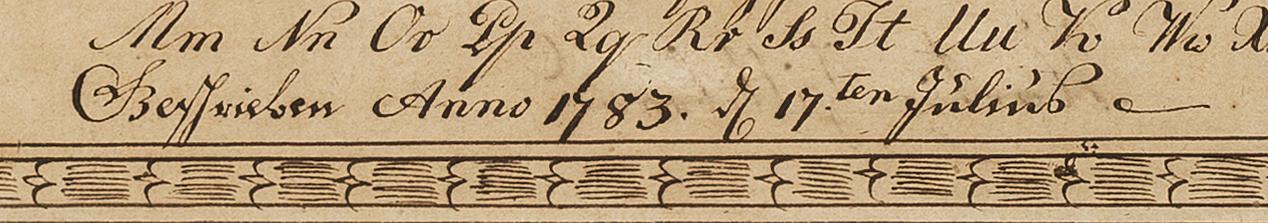 Mm Nn Oo Pp Qq Rr Ss Tt Uu Vv Ww X
Geschrieben Anno 1783. d 17.ten Julius